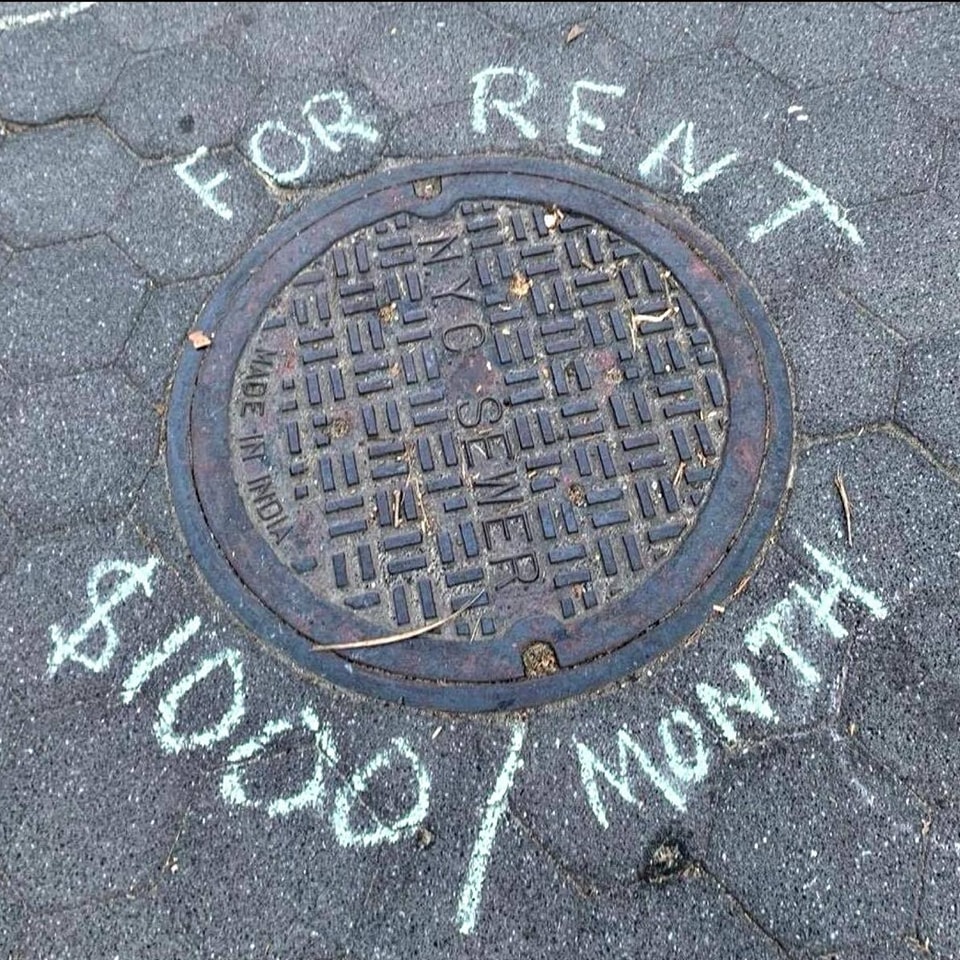 FOR RENT
NYC SEWER
MADE IN INDIA
$1000/MONTH